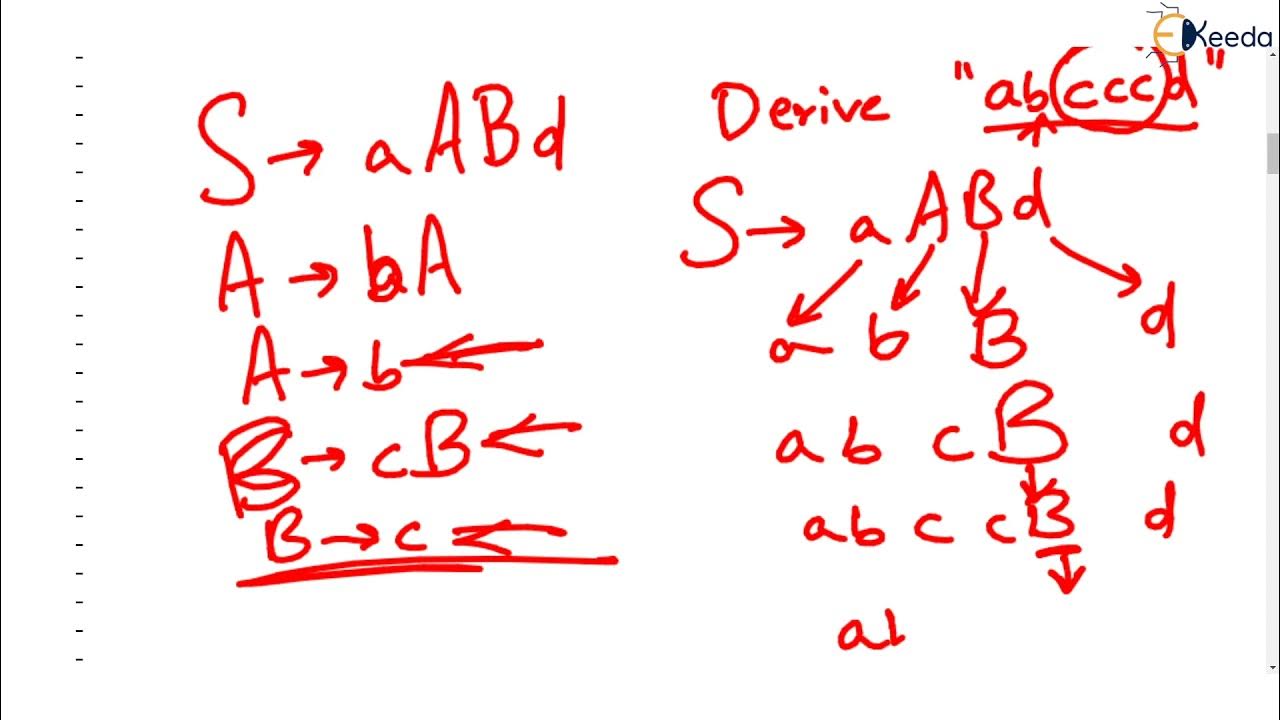 Keeda
S → aABd
A → bA
A → b
B → cB
B → c
Derive "abcccd"
S → aABd
a b B d
a b c B d
a b c c B d
ab